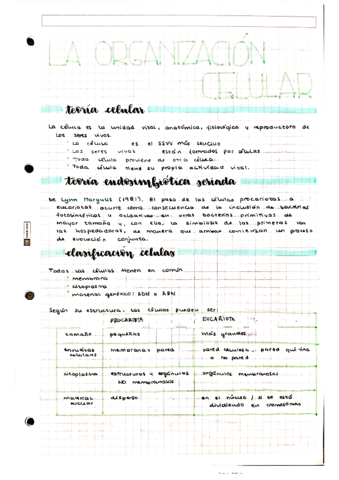 LA ORGANIZACIÓN
CELULAR
teoría celular
La célula es la unidad vital, anatómica, fisiológica y reproductora de
los seres vivos.
· La célula es el SSVV más sencillo
· Los seres vivos están formados por células
· Toda célula proviene de otra célula.
· Toda célula tiene su propia actividad vital.
teoría endosimbiótica seriada
De Lynn Margulis (1981). El paso de las células procariotas a
eucariotas ocurre como consecuencia de la inclusión de bacterias
fotosintéticas y oxidativas en otras bacterias primitivas de
mayor tamaño y, con ella, la simbiosis de las primeras con
las hospedadoras, de manera que ambas comienzan un proceso
de evolución conjunta.
clasificación células
Todas las células tienen en común
· membrana
· citoplasma
· material genético: ADN o ARN
Según su estructura, las células pueden ser:
PROCARIOTA EUCARIOTA
tamaño pequeñas más grandes
envolturas celulares membrana y pared pared celulosa, pared quitina
o no pared
citoplasma estructuras y orgánulos orgánulos membranosos
NO membranosos
material nuclear disperso en el núcleo / si se está
dividiendo en cromosomas